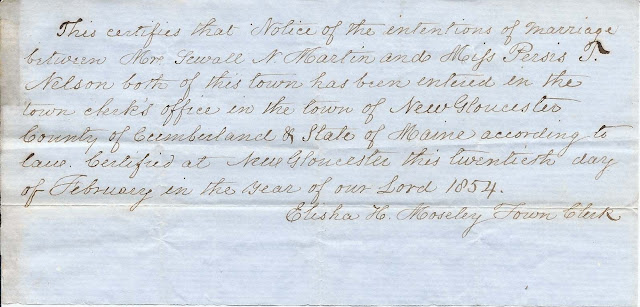 This certifies that Notice of the intentions of marriage
between Mr. Sewall N Martin and Miss Persis T.
Nelson both of this town has been entered in the
town clerk's office in the town of New Gloucester
County of Cumberland & State of Maine according to
law. Certified at New Gloucester this twentieth day
of February in the year of our Lord 1854.
Elisha H. Moseley Town Clerk